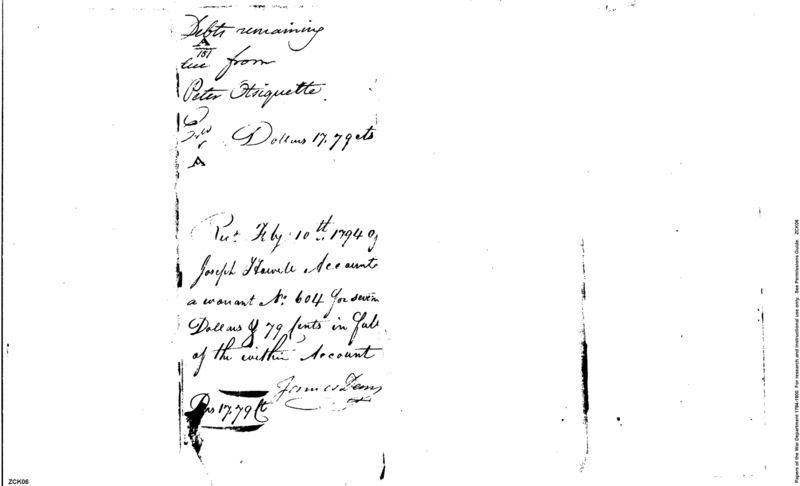 Debts remaining
A
151
due from
Peter Otsiquette
A
Dollars 17.79 cts
Rec.d Feby 10th 1794 of
Joseph Howell Accountt
a warrant No. 604 for seven
Dollars & 79 Cents in full
of the within Account
James Dean
Drs 17.79 Ct
ZCK06
Papers of the War Department 1784-1800. For research and instructional use only. See Permissions Guide. ZCK06